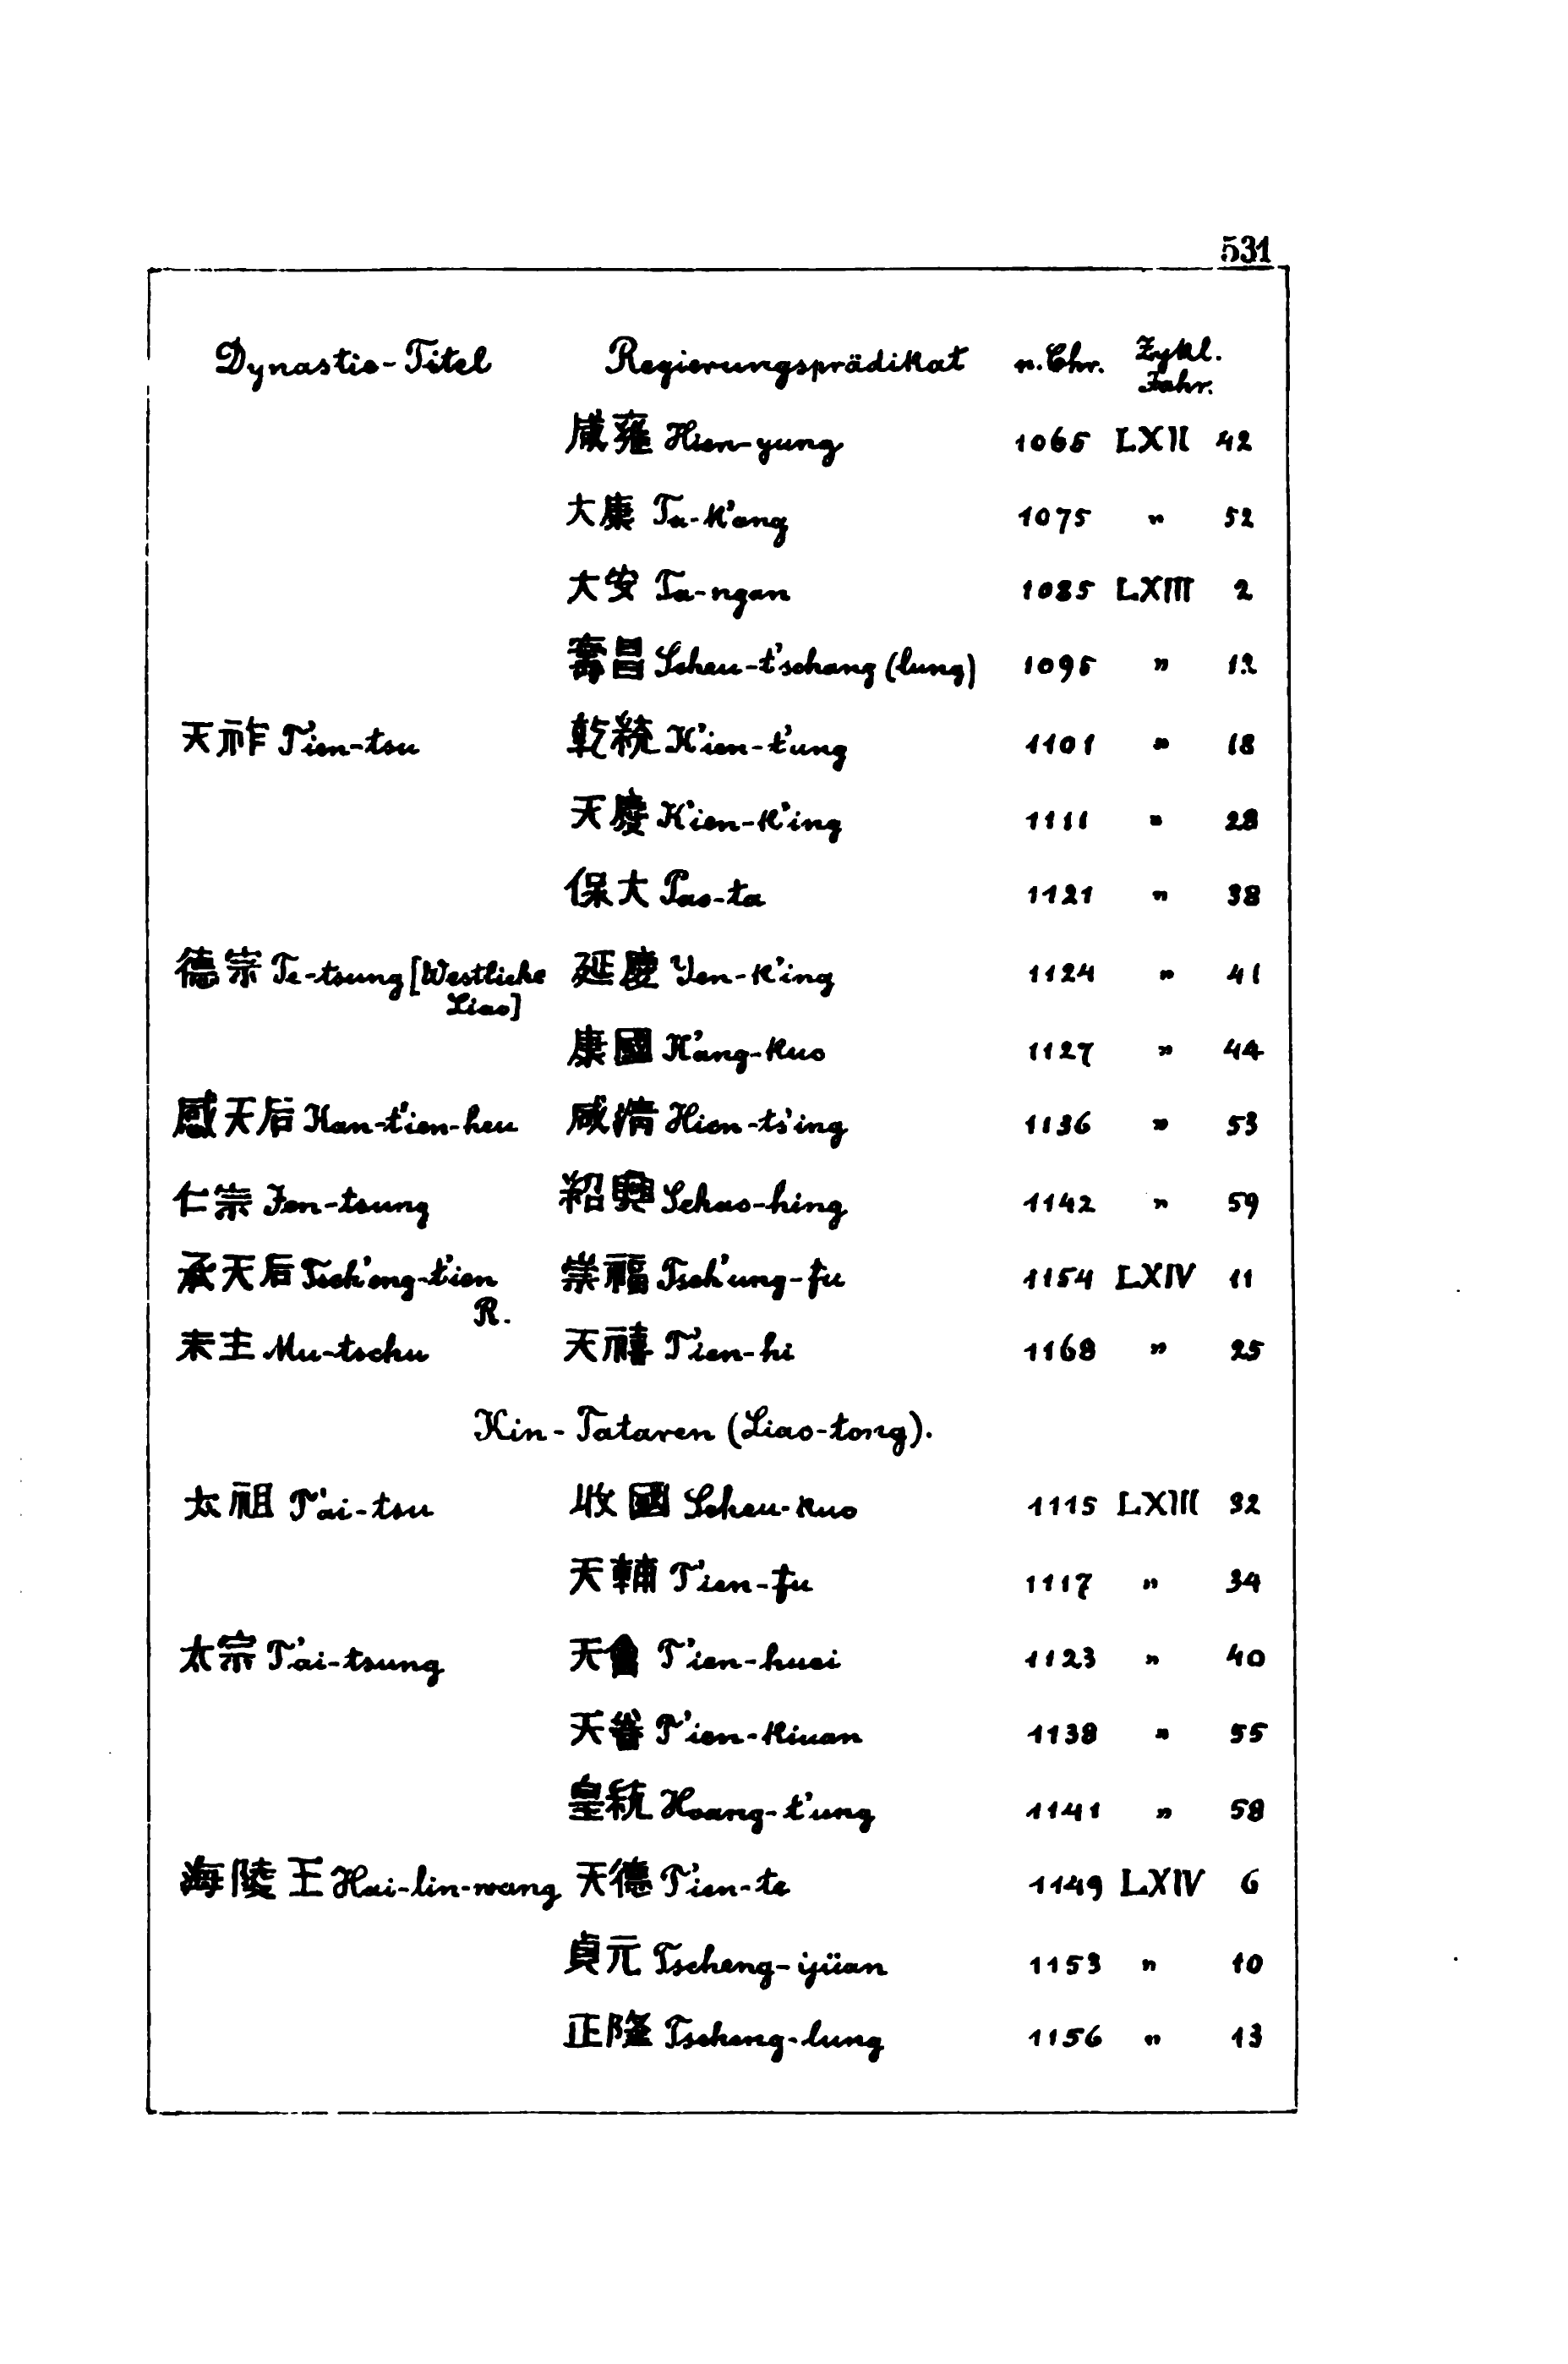 531
Dynastie-Titel Regierungsprädikat n. Chr. Zykl. Jahr.
咸雍 Hien-yung 1065 LXII 42
大康 Ta-k'ang 1075 " 52
大安 Ta-ngan 1085 LXIII 2
壽昌 Scheu-t'schang (lung) 1095 " 12
天祚 T'ien-tsu 乾統 K'ien-t'ung 1101 " 18
天慶 K'ien-k'ing 1111 " 28
保大 Pao-ta 1121 " 38
德宗 Te-tsung [Westliche Liao] 延慶 Yen-k'ing 1124 " 41
康國 K'ang-kuo 1127 " 44
感天后 Kan-t'ien-heu 咸清 Hien-ts'ing 1136 " 53
仁宗 Jen-tsung 紹興 Schao-hing 1142 " 59
承天后 Tsch'eng-t'ien R. 崇福 Tsch'ung-fu 1154 LXIV 11
末主 Mu-tschu 天禧 T'ien-hi 1168 " 25
Kin-Tataren (Liao-tong).
太祖 T'ai-tsu 收國 Scheu-kuo 1115 LXIII 32
天輔 T'ien-fu 1117 " 34
太宗 T'ai-tsung 天會 T'ien-huei 1123 " 40
天眷 T'ien-kiuan 1138 " 55
皇統 Hoang-t'ung 1141 " 58
海陵王 Hai-lin-wang 天德 T'ien-te 1149 LXIV 6
貞元 Tscheng-yüan 1153 " 10
正隆 Tscheng-lung 1156 " 13